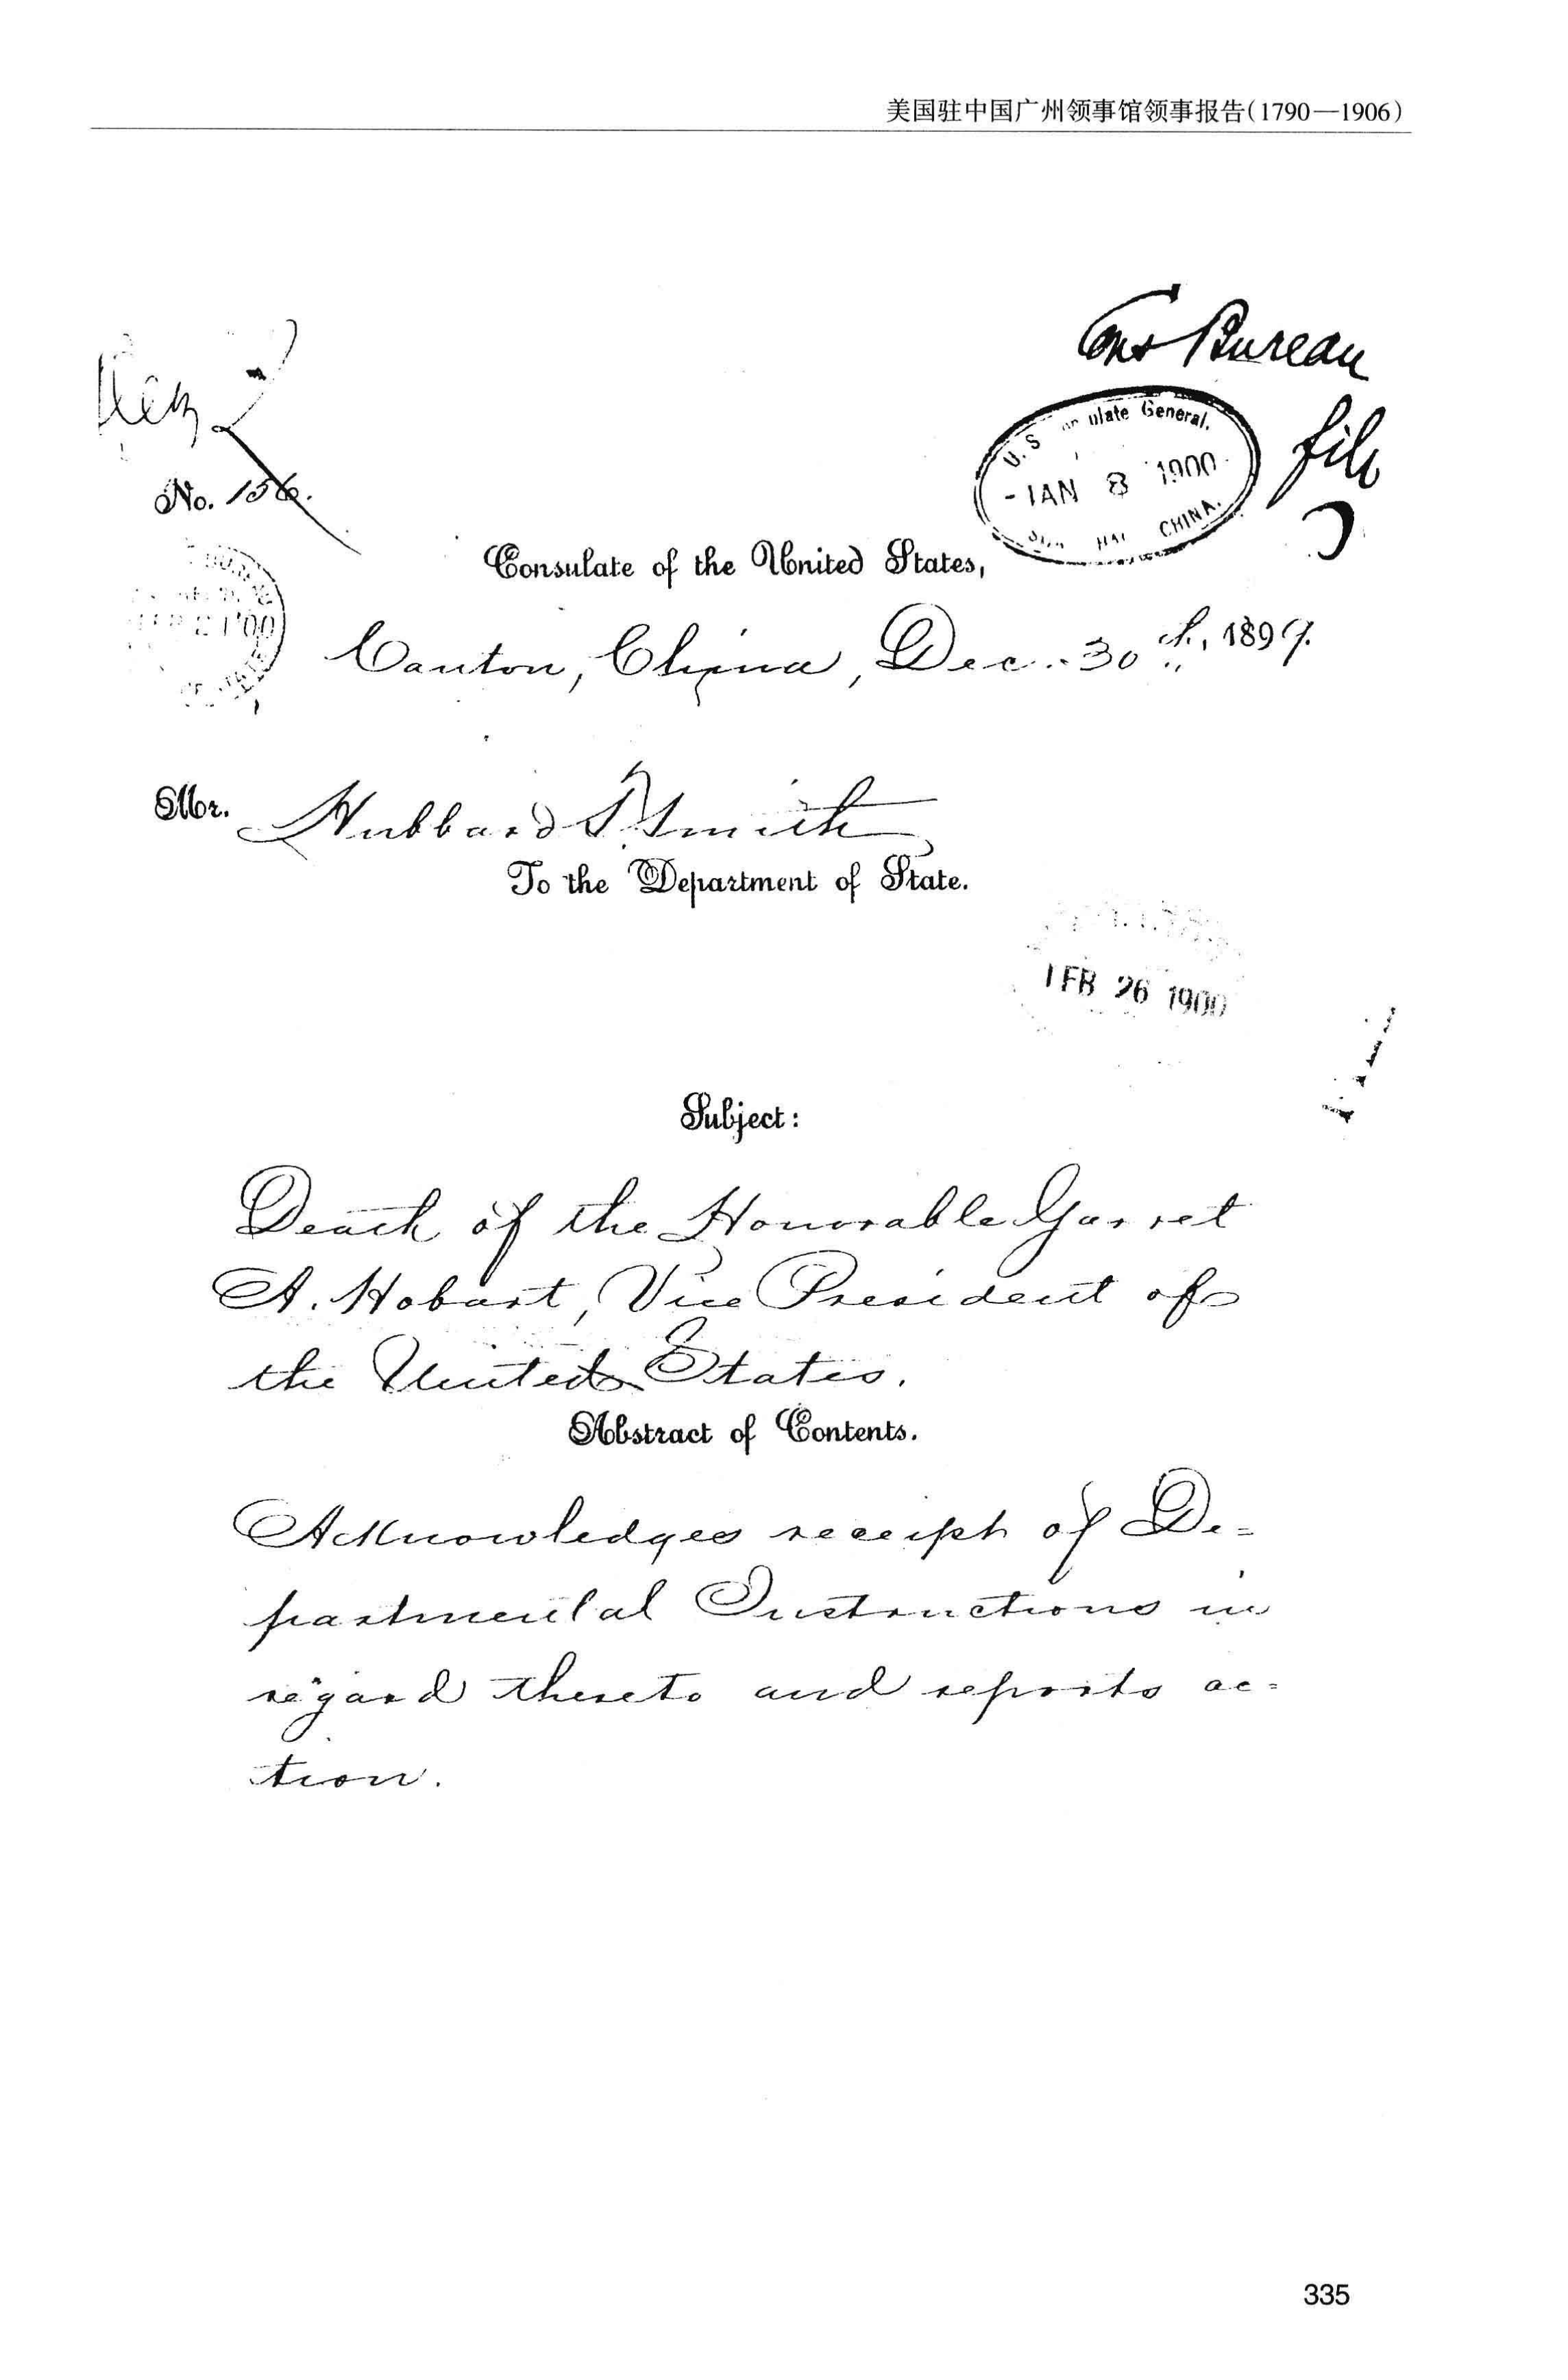 美国驻中国广州领事馆领事报告(1790—1906)
Cons Bureau
file
U.S. Consulate General.
JAN 8 1900
CHINA.
No. 156.
Consulate of the United States,
Canton, China, Dec. 30th, 1899.
Mr. Hubbard T. Smith
To the Department of State.
FEB 26 1900
Subject:
Death of the Honorable Garret
A. Hobart, Vice President of
the United States.
Abstract of Contents.
Acknowledges receipt of De=
partmental Instructions in
regard thereto and reports ac=
tion.
335